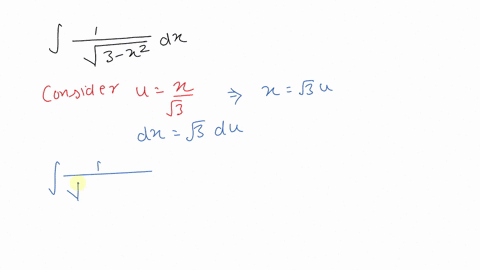 ∫ 1/√(3-x²) dx
Consider u = x/√3 ⇒ x = √3 u
dx = √3 du
∫ 1/√